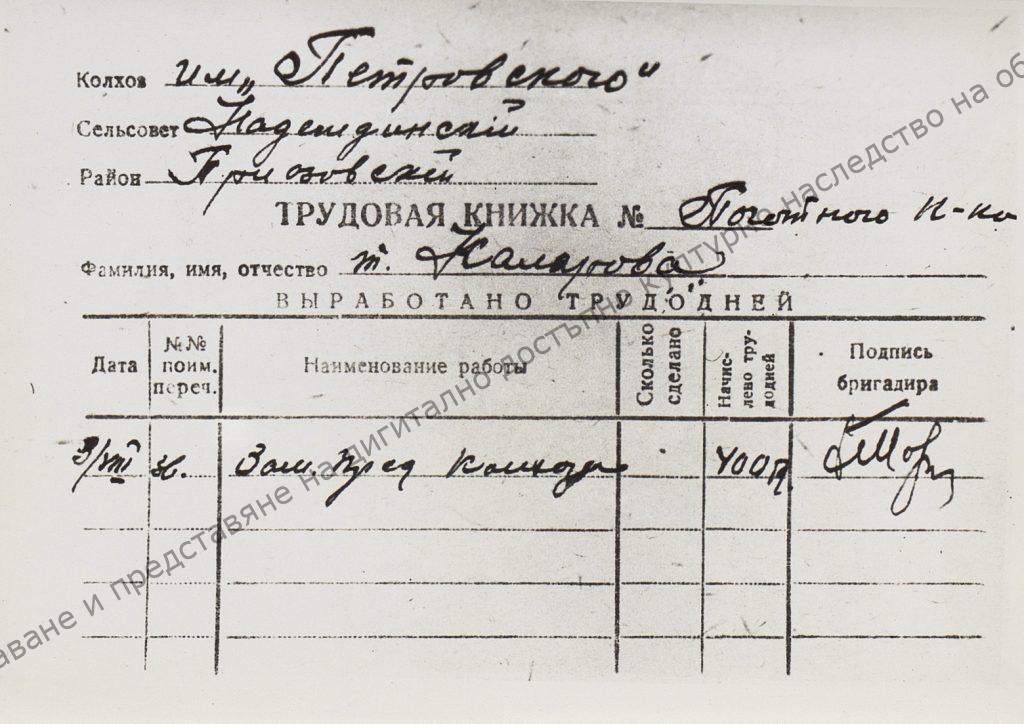 Колхоз им „Петровского"
Сельсовет Надеждинскій
Район Приазовскій
ТРУДОВАЯ КНИЖКА № Почотного к-ка
Фамилия, имя, отчество т. Коларова
ВЫРАБОТАНО ТРУДОДНЕЙ
Дата
№№ поим. переч.
Наименование работы
Сколько сделано
Начис- лено тру- додней
Подпись бригадира
3/VIII Зам. Пред колхоза 400
аване и представяне на дигитално достъпно културно наследство на об